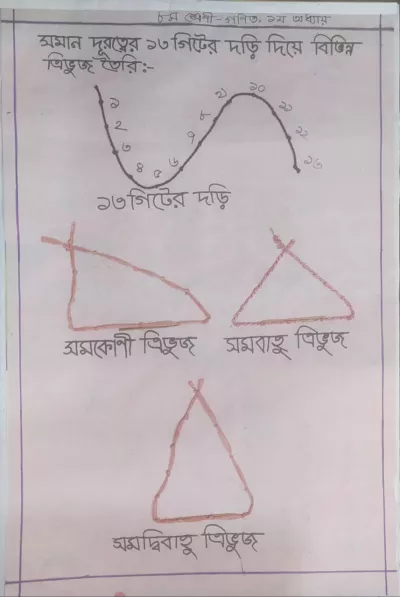 ৮ম শ্রেণী-গণিত, ১ম অধ্যায়
সমান দূরত্বের ১৩ গিটের দড়ি দিয়ে বিভিন্ন
ত্রিভুজ তৈরি:-
১
২
৩
৪
৫
৬
৭
৮
৯
১০
১১
১২
১৩
১৩ গিটের দড়ি
সমকোণী ত্রিভুজ
সমবাহু ত্রিভুজ
সমদ্বিবাহু ত্রিভুজ